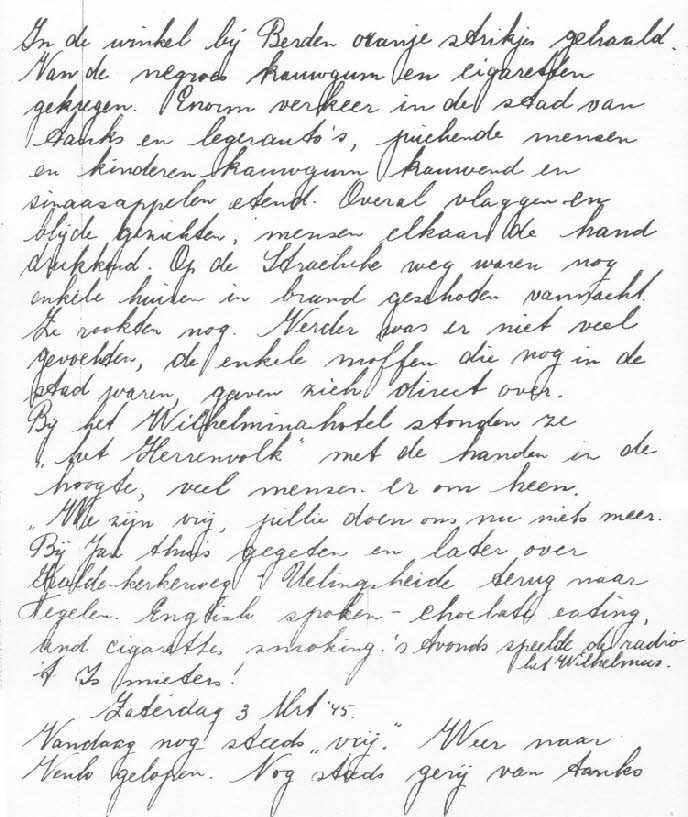 In de winkel bij Berden oranje strikjes gehaald.
Van de negroes kauwgum en cigaretten
gekregen. Enorm verkeer in de stad van
tanks en legerauto's, juichende mensen
en kinderen kauwgum kauwend en
sinaasappelen etend. Overal vlaggen en
blijde gezichten, mensen elkaar de hand
drukkend. Op de Straelse weg waren nog
enkele huizen in brand geschoten vannacht.
Ze rookten nog. Verder was er niet veel
gevochten, de enkele moffen die nog in de
stad waren, gaven zich direct over.
Bij het Wilhelminahotel stonden ze
"het Herrenvolk" met de handen in de
hoogte, veel mensen er om heen.
"We zijn vrij, jullie doen ons nu niets meer.
Bij Jan thuis gegeten en later over
Kaldenkerkerweg Ulingsheide terug naar
Tegelen. English spoken - choclate eating,
and cigarettes smoking. 's Avonds speelde de radio
het Wilhelmus.
't Is mieters!
Zaterdag 3 Mrt '45.
Vandaag nog steeds "vrij." Weer naar
Venlo gelopen. Nog steeds gerij van tanks